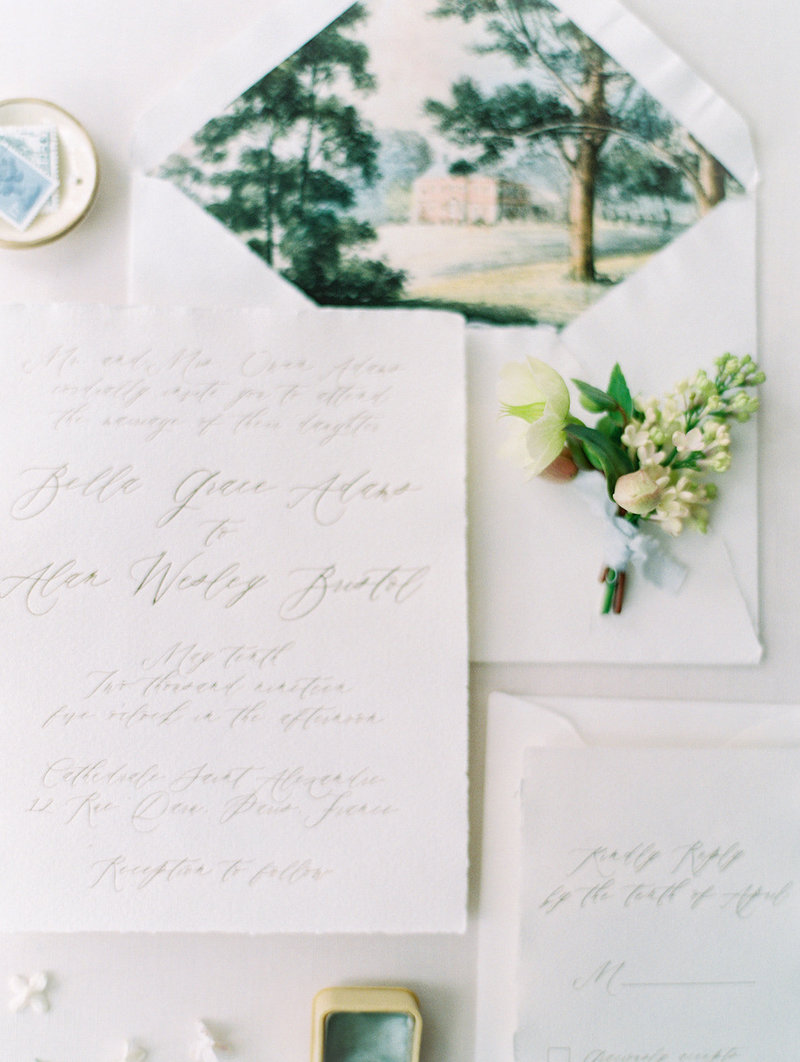 Mr. and Mrs. Owen Adams
cordially invite you to attend
the marriage of their daughter
Bella Grace Adams
to
Alan Wesley Bristol
May tenth
Two thousand nineteen
five o'clock in the afternoon
Cathédrale Saint Alexandre
12 Rue Daru, Paris, France
Reception to follow
Kindly Reply
by the tenth of April
M